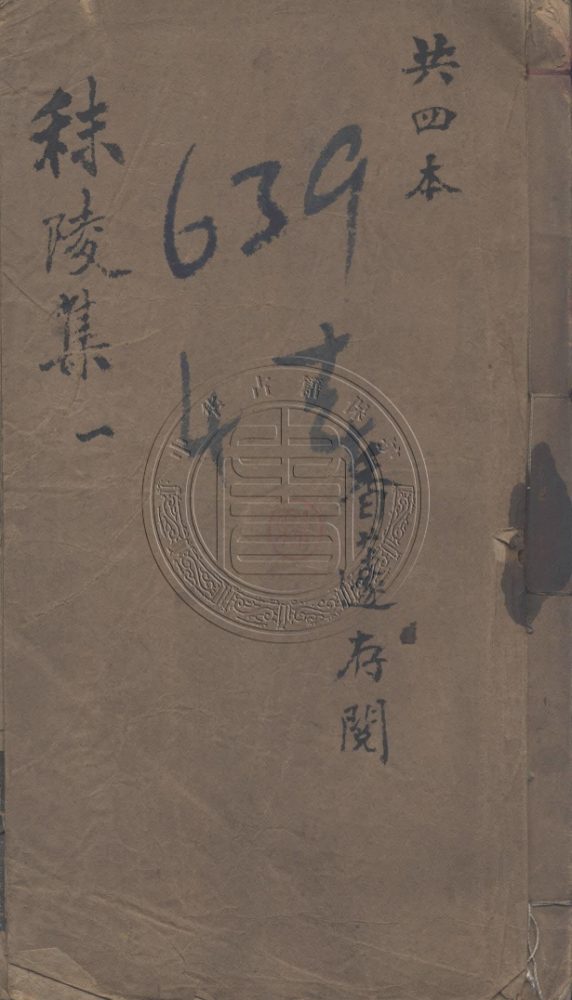 共四本
639
4 
存閱
秣陵集 一